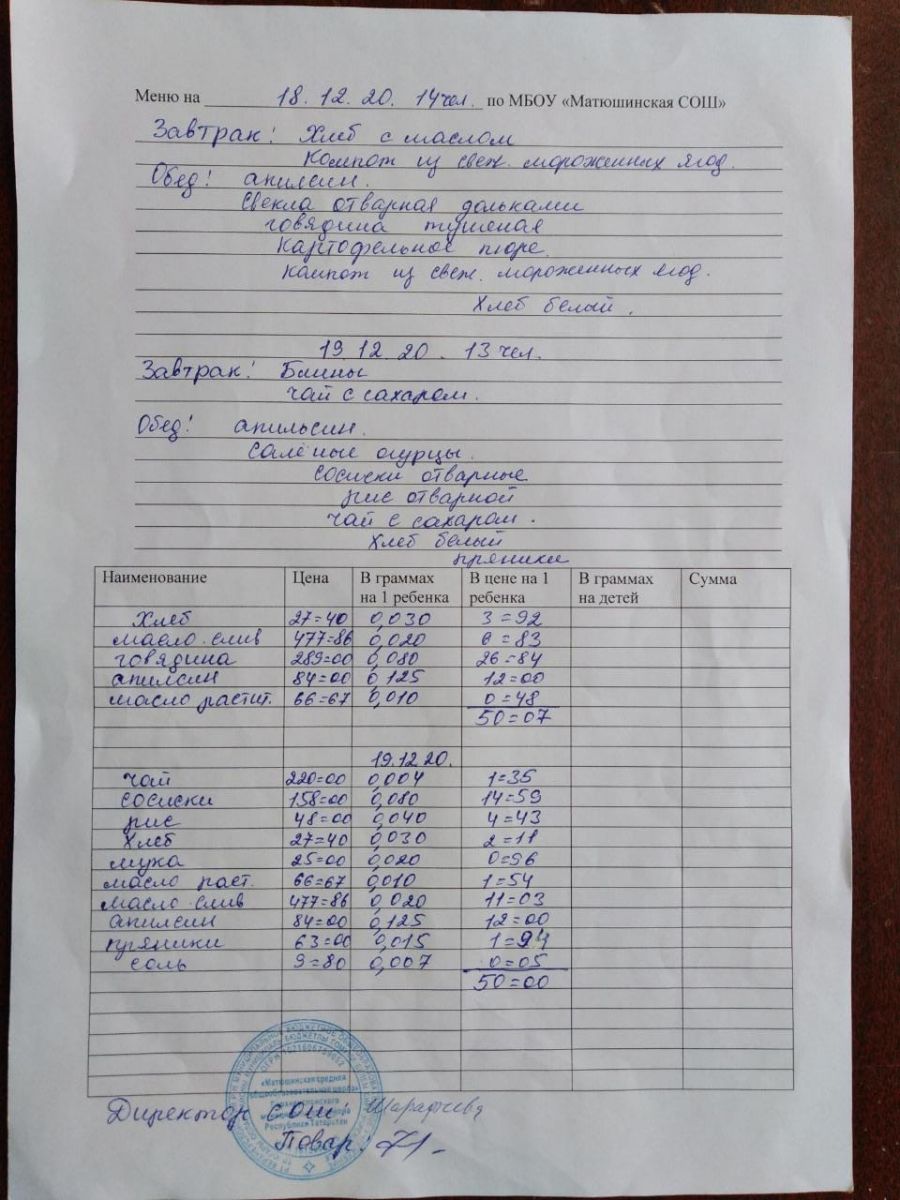 Меню на 18.12.20. 14 чел. по МБОУ «Матюшинская СОШ»
Завтрак: Хлеб с маслом
Компот из свеж. мороженных ягод.
Обед: апилсин.
Свекла отварная дольками
говядина тушеная
Картофельное пюре
Компот из свеж. мороженных ягод.
Хлеб белый.
19 12 20. 13 чел.
Завтрак: Блины
чай с сахаром.
Обед: апильсин.
Солёные огурцы.
Сосиски отварные
рис отварной
чай с сахаром.
Хлеб белый
пряники
Наименование Цена В граммах на 1 ребенка В цене на 1 ребенка В граммах на детей Сумма
Хлеб 27=40 0,030 3=92
масло слив 477=86 0,020 6=83
говядина 289=00 0,080 26=84
апилсин 84=00 0,125 12=00
масло растит. 66=67 0,010 0=48
50=07
19.12.20.
чай 220=00 0,004 1=35
сосиски 158=00 0,080 14=59
рис 48=00 0,040 4=43
Хлеб 27=40 0,030 2=11
мука 25=00 0,020 0=96
масло раст. 66=67 0,010 1=54
масло слив 477=86 0,020 11=03
апилсин 84=00 0,125 12=00
пряники 63=00 0,015 1=94
соль 9=80 0,007 0=05
50=00
«Матюшинская средняя
общеобразовательная школа»
Республики Татарстан
Директор СОШ:
Повар: